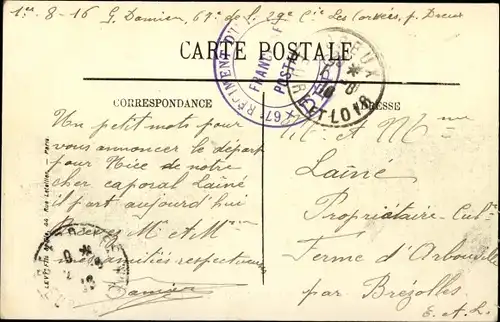 1er 8-16 G. Damien, 67e de L. 29e Cie Les Corvées, p. Dreux
CARTE POSTALE
67e REGIMENT D'
FRAN
POSTA
DREUX
EURE-ET-LOIR
CORRESPONDANCE
ADRESSE
Un petit mots pour
vous annoncer le départ
pour Nice de notre
cher caporal Lainé
il part aujourd'hui
Recevez M. et Mme
mes amitiés respectueuses
Damien
M. et Mme
Lainé
Propriétaire-Cult.
Ferme d'
par Brezolles
E. et L.
LEVY FILS 44, Rue Letellier — Paris.